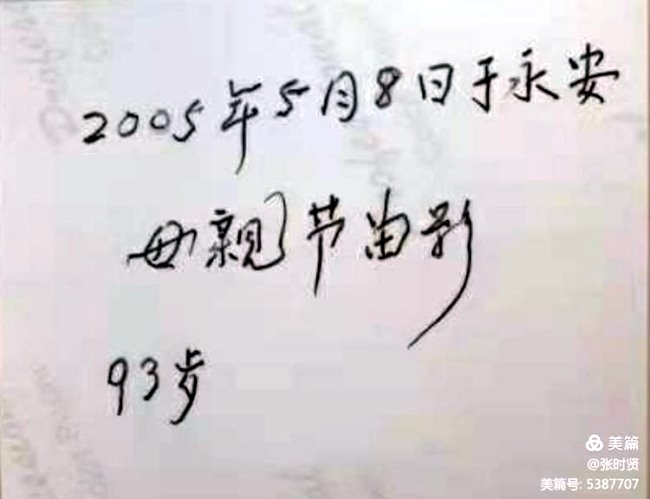 2005年5月8日于永安
母亲节留影
93岁
美篇
@张时贤
美篇号: 5387707